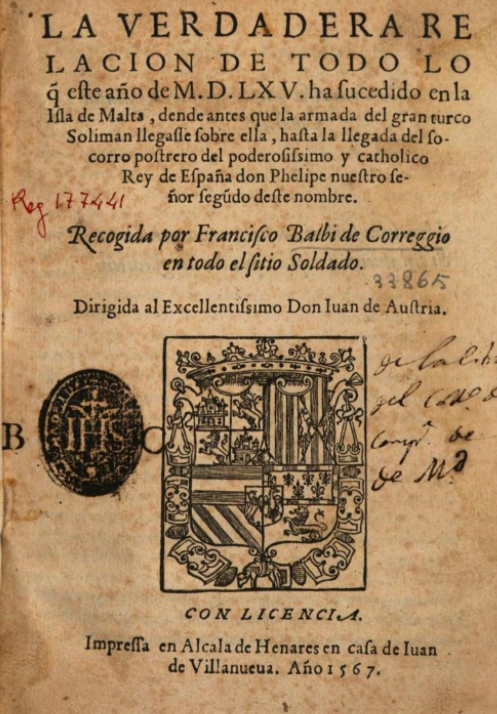 LA VERDADERA RE
LACION DE TODO LO
q̃ este año de M.D.LXV. ha sucedido en la
Isla de Malta, dende antes que la armada del gran turco
Soliman llegasse sobre ella, hasta la llegada del so-
corro postrero del poderosissimo y catholico
Rey de España don Phelipe nuestro se-
ñor segũdo deste nombre.
Reg 177441
Recogida por Francisco Balbi de Correggio
en todo el sitio Soldado.
33865
Dirigida al Excellentissimo Don Iuan de Austria.
de la lib
del
de
de Md
B IHS C
CON LICENCIA.
Impressa en Alcala de Henares en casa de Iuan
de Villanueua. Año 1567.